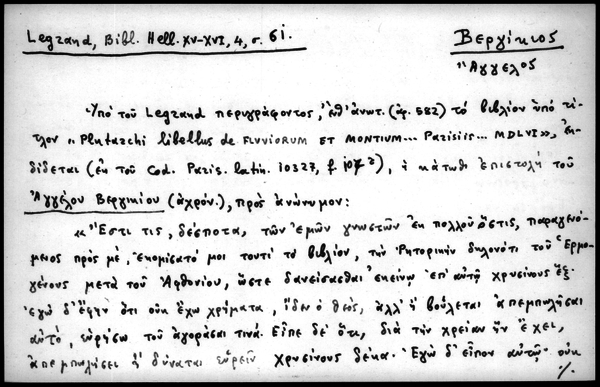 Legrand, Bibl. Hell. XV-XVI, 4, σ. 61.
Βεργίκιος
Ἄγγελος
Ὑπό τοῦ Legrand περιγράφοντος, ἔνθ' ἀνωτ. (ἀρ. 582) τό βιβλίον ὑπό τί-
τλον «Plutarchi libellus de FLVVIORUM ET MONTIUM... Parisiis... MDLVI», ἐκ-
δίδεται (ἐκ τοῦ Cod. Paris. latin. 10327, f 107 2), ἡ κάτωθι ἐπιστολή τοῦ
Ἀγγέλου Βεργικίου (ἀχρόν.), πρός ἀνώνυμον:
« Ἔστι τις, δέσποτα, τῶν ἐμῶν γνωστῶν ἐκ πολλοῦ ὅστις, παραγενό-
μενος πρός μέ, ἐκόμισατό μοι τουτί τό βιβλίον, τήν Ῥητορικήν δηλονότι τοῦ Ἑρμο-
γένους μετά τοῦ Ἀφθονίου, ὥστε δανείσασθαι ἐκείνῳ ἐπ' αὐτῷ χρυσίνους ἕξ.
ἐγώ δ' ἔφην ὅτι οὐκ ἔχω χρήματα, ἴδεν ὁ θεός, ἀλλ' εἰ βούλεται ἀπεμπωλῆσαι
αὐτό, εὑρήσω τοῦ ἀγοράσαι τινά. Εἶπε δέ ὅτι, διά τήν χρείαν ἥν ἔχει,
ἀπεμπωλήσει εἰ δύναται εὑρεῖν χρυσίνους δέκα. Ἐγώ δ' εἶπον αὐτῷ· οὐκ
./.